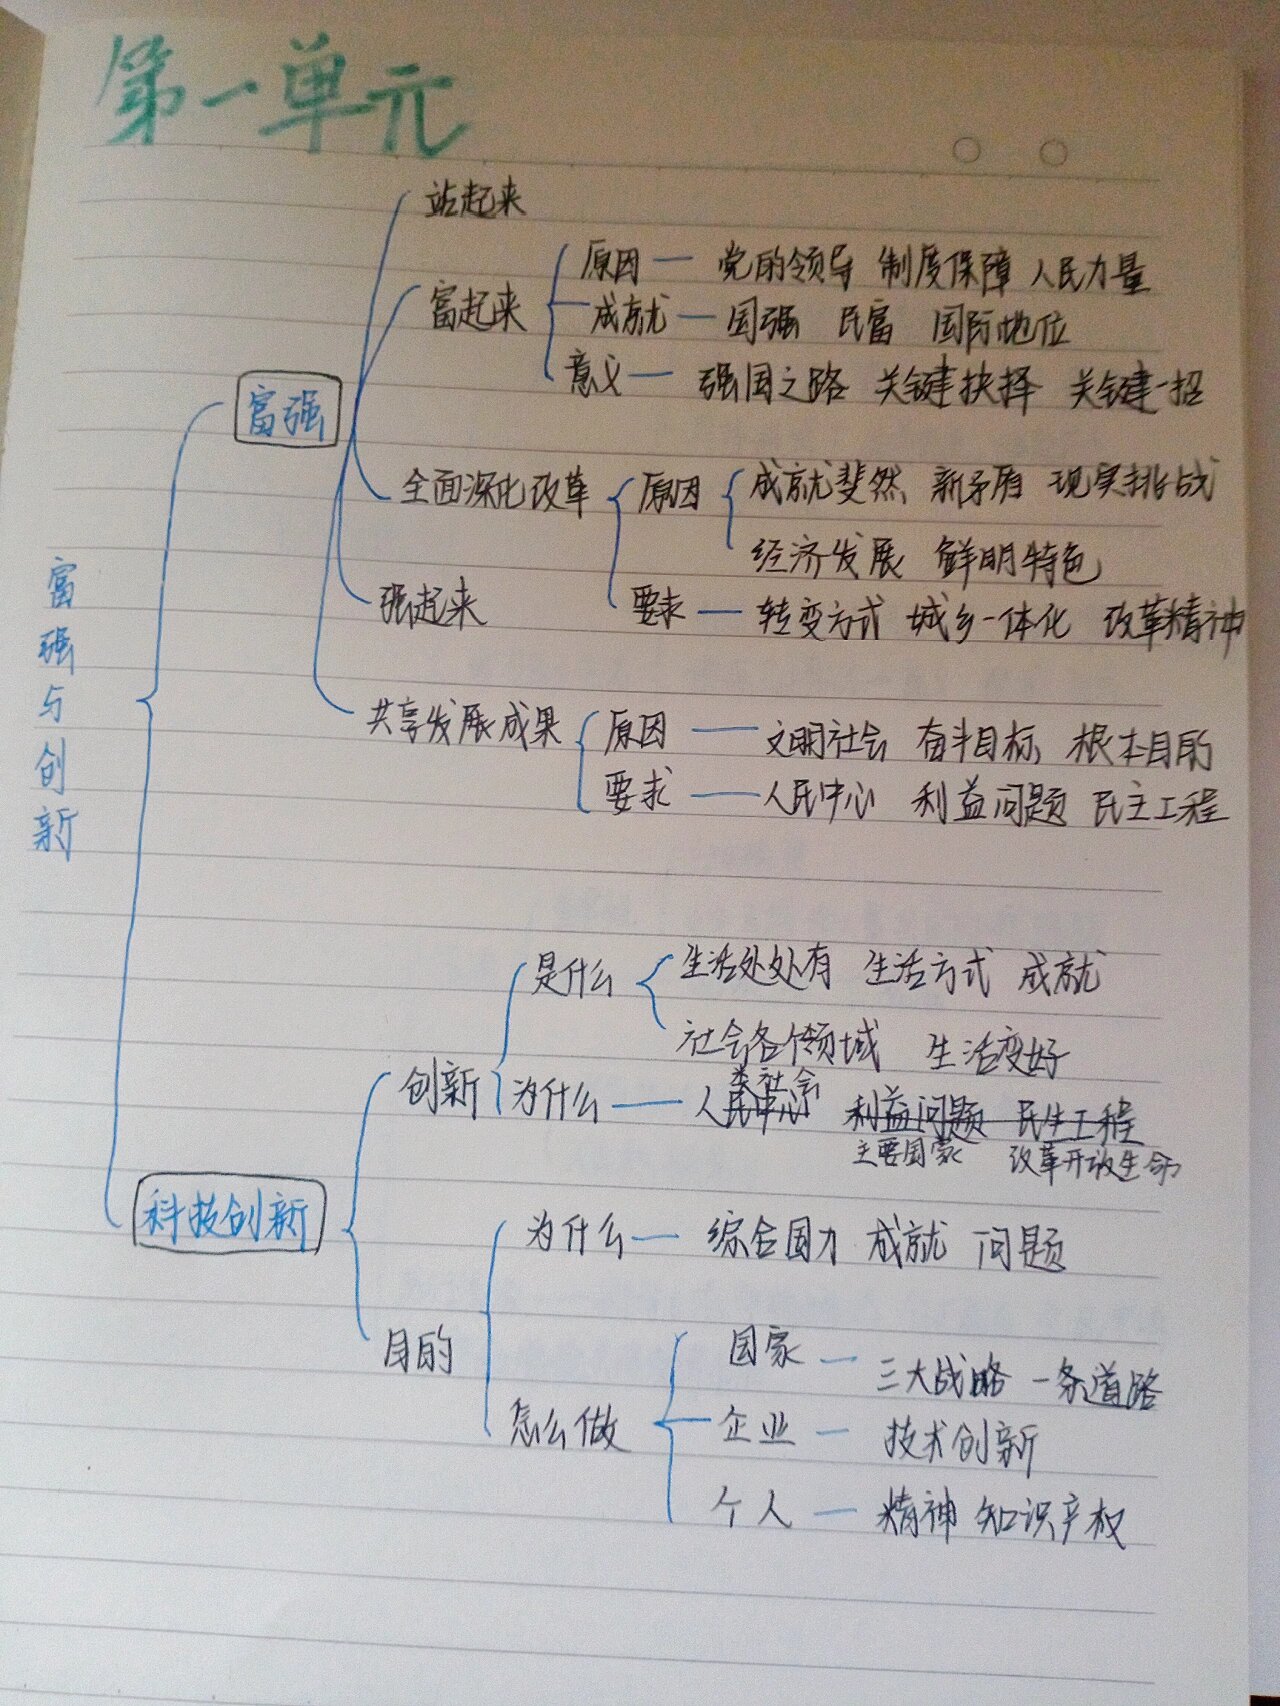 第一单元
富强与创新
富强
站起来
富起来
原因 — 党的领导 制度保障 人民力量
成就 — 国强 民富 国际地位
意义 — 强国之路 关键抉择 关键一招
全面深化改革
原因
成就斐然 新矛盾 现实挑战
经济发展 鲜明特色
要求 — 转变方式 城乡一体化 改革精神
强起来
共享发展成果
原因 — 文明社会 奋斗目标 根本目的
要求 — 人民中心 利益问题 民主工程
科技创新
创新
是什么
生活处处有 生活方式 成就
社会各个领域 生活变好
类社会
为什么 — 人民中心 利益问题 民生工程
主要国家 改革开放生命
目的
为什么 — 综合国力 成就 问题
怎么做
国家 — 三大战略 一条道路
企业 — 技术创新
个人 — 精神 知识产权